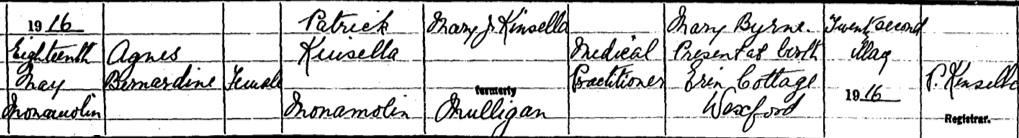 1916 Patrick Mary J. Kinsella Mary Byrne. Twenty second
Eighteenth Agnes Kinsella Medical Present at birth May
May Bernardine Female Practitioner Erin Cottage 1916 P. Kinsella
Monamolin Monamolin formerly Mulligan Wexford Registrar.